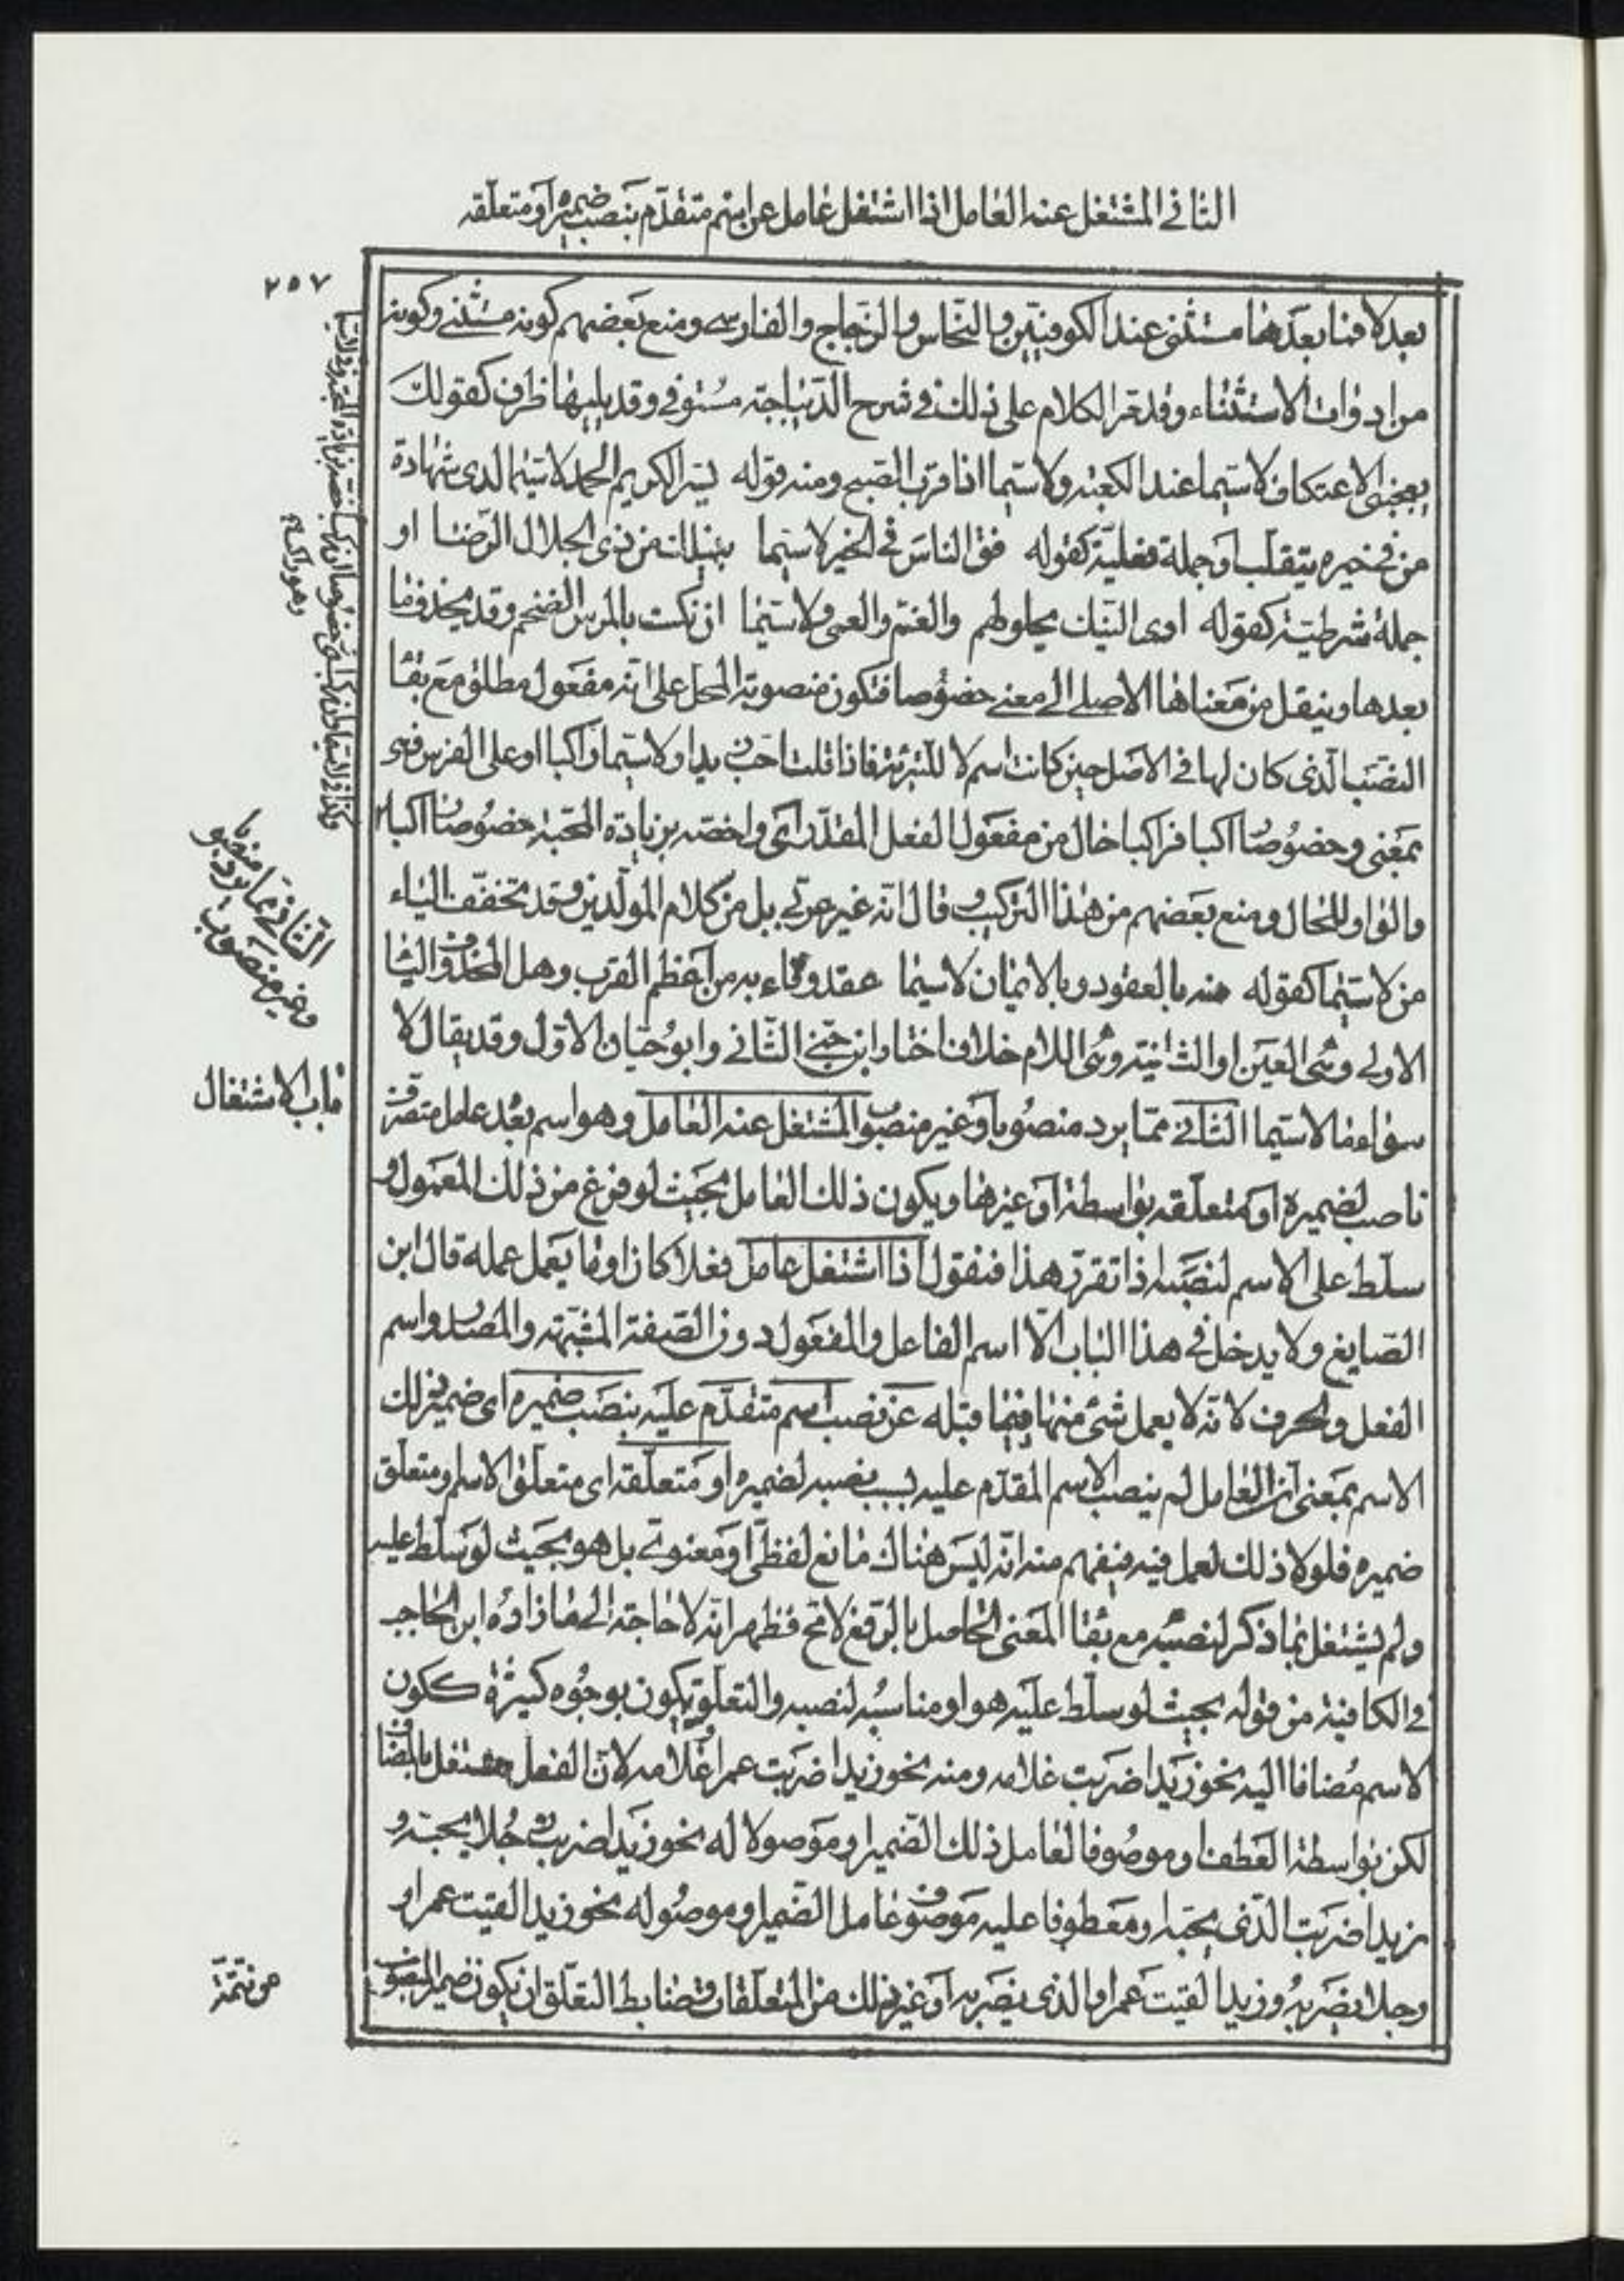 الثاني المشتغل عنه العامل اذا اشتغل عامل عن اسم متقدّم بنصب ضميره او متعلّقه
٢٥٧
بعد لا فما بعدها مستثنى عند الكوفيّين والنحّاس والزجّاج والفارسي ومنع بعضهم كونه مستثنى وكونه
من ادوات الاستثناء وقد مرّ الكلام على ذلك في شرح الدّيباجة مستوفى وقد يليها ظرف كقولك
يعجبني الاعتكاف لا سيّما عند الكعبة ولا سيّما اذا قرب الصبح ومنه قوله يسر الكريم الحمد لا سيّما لدى شهادة
من في خيره يتقلّب او جملة فعليّة كقوله فق الناس في الخير لا سيّما ينيلك من ذى الجلال الرّضا او
جملة شرطيّة كقوله ارى النيك يجلو الهم والغمّ والعمى ولا سيّما ان نكت بالمرس الضخم وقد يحذف ما
بعدها وينقل من معناها الاصلي الى معنى خصوصا فتكون منصوبة المحل على انه مفعول مطلق مع بقا
النصب الّذى كان لها في الاصل حين كانت اسم لا للتبرئة فاذا قلت احبّ زيدا ولا سيّما راكبا او على الفرس فهى
بمعنى وخصوصا راكبا فراكبا حال من مفعول الفعل المقدّر اى واخصّه بزيادة المحبّة خصوصا راكبا
والواو للحال ومنع بعضهم من هذا التركيب وقال انّه غير عربي بل من كلام المولّدين وقد تخفّف الياء
من لا سيّما كقوله فه بالعقود وبالايمان لا سيما عقد وفاء به من اعظم القرب وهل المحذوف اليا
الاولى وهى العين او الثانية وهى اللام خلاف اختار ابن جنّى الثّاني وابو حيّان الاوّل وقد يقال لا
سواء ما لا سيّما الثاني ممّا يرد منصوبا وغير منصوب المشتغل عنه العامل وهو اسم بعد عامل متصرف
ناصب لضميره او لمتعلّقه بواسطة او غيرها ويكون ذلك العامل بحيث لو فرغ من ذلك المعمول و
سلّط على الاسم لنصبه اذا تقرّر هذا فنقول اذا اشتغل عامل فعلا كان او ما يعمل عمله قال ابن
الصّايغ ولا يدخل في هذا الباب الّا اسم الفاعل والمفعول دون الصّفة المشبّهة والمصدر واسم
الفعل والحرف لانّه لا يعمل شئ منها فيما قبله عن نصب اسم متقدّم عليه بنصب ضميره اى ضمير ذلك
الاسم بمعنى انّ العامل لم ينصب الاسم المقدّم عليه بسبب نصبه لضميره او متعلّقه اى متعلّق الاسم او متعلق
ضميره فلولا ذلك لعمل فيه فيفهم منه انّه ليس هناك مانع لفظىّ او معنويّ بل هو بحيث لو سلّط عليه
ولم يشتغل بما ذكر لنصبه مع بقا المعنى الحاصل بالرّفع لا مح فظهر انّه لا حاجة الى ما زاده ابن الحاجب
في الكافية من قوله بحيث لو سلّط عليه هو او مناسبه لنصبه والتعلّق يكون بوجوه كثيرة ككون
الاسم مضافا اليه نحو زيدا ضربت غلامه ومنه نحو زيدا ضربت عمرا وغلامه لانّ الفعل مشتغل بالمضاف
لكن بواسطة العطف او موصوفا لعامل ذلك الضّمير او موصولا له نحو زيدا ضربت رجلا يحبّه و
زيدا ضربت الّذى يحبّه او معطوفا عليه موصوف عامل الضّمير او موصوله نحو زيدا لقيت عمرا و
رجلا يضربه وزيدا لقيت عمرا والذى يضربه او غير ذلك من المتعلّقات وضابط التعلّق ان يكون ضمير المنصوب
وهو راكب
الثاني مما يرد منصوبا
وغير منصوب
باب الاشتغال
من تتمّة